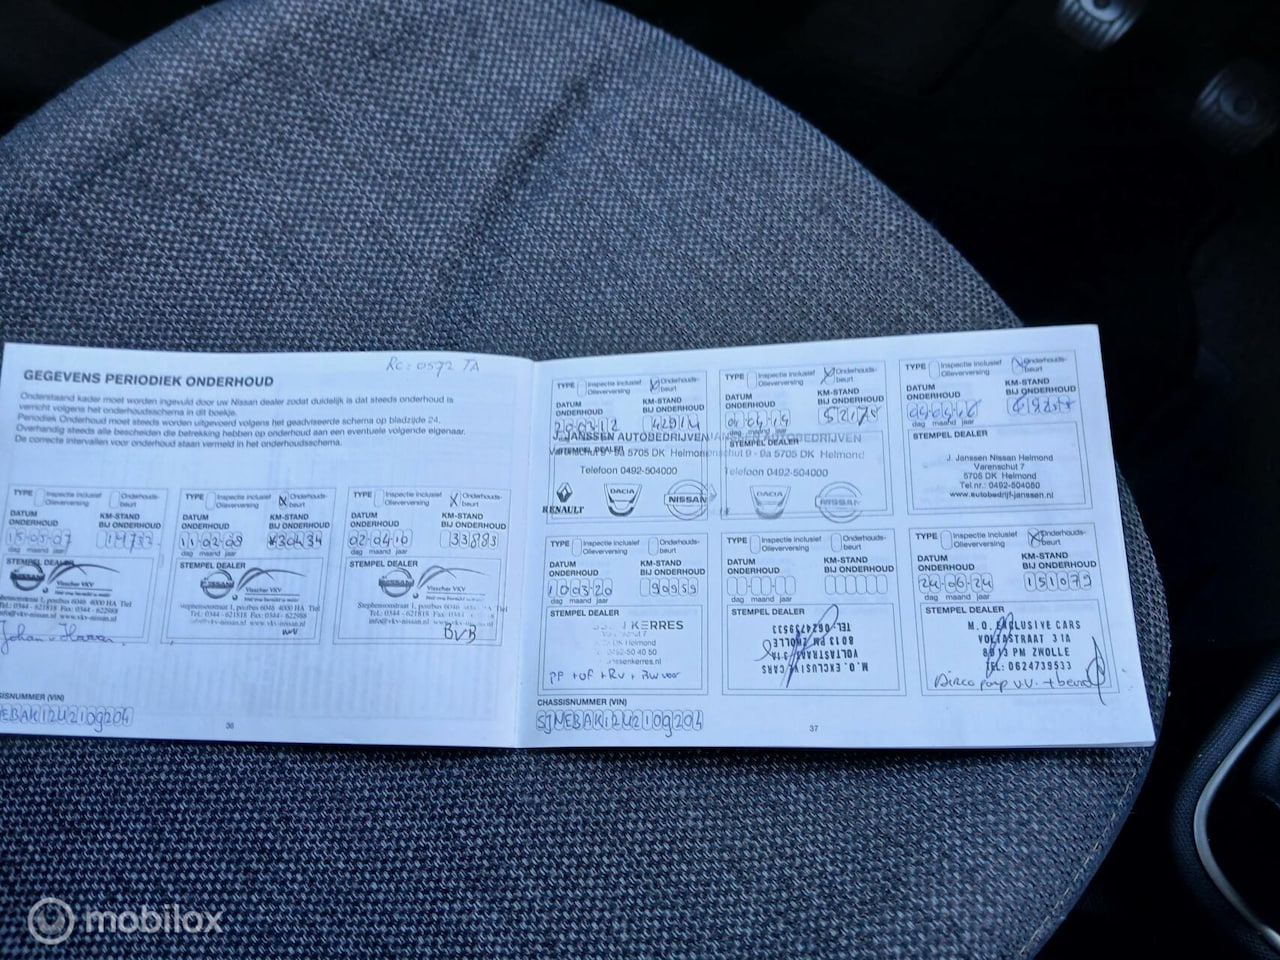 RC: 0572 TA
GEGEVENS PERIODIEK ONDERHOUD
Onderstaand kader moet worden ingevuld door uw Nissan dealer zodat duidelijk is dat steeds onderhoud is
verricht volgens het onderhoudsschema in dit boekje.
Periodiek Onderhoud moet steeds worden uitgevoerd volgens het geadviseerde schema op bladzijde 24.
Overhandig steeds alle bescheiden die betrekking hebben op onderhoud aan een eventuele volgende eigenaar.
De correcte intervallen voor onderhoud staan vermeld in het onderhoudsschema.
TYPE Inspectie inclusief Olieverversing Onderhouds-beurt
DATUM ONDERHOUD KM-STAND BIJ ONDERHOUD
15-05-07
dag maand jaar
STEMPEL DEALER
NISSAN Visscher VKV
Stephensonstraat 1, postbus 6046 4000 HA Tiel
Tel.: 0344 - 621818 Fax: 0344 - 622988
info@vkv-nissan.nl www.vkv-nissan.nl
TYPE Inspectie inclusief Olieverversing Onderhouds-beurt
DATUM ONDERHOUD KM-STAND BIJ ONDERHOUD
11-02-08 30434
dag maand jaar
STEMPEL DEALER
NISSAN Visscher VKV
Stephensonstraat 1, postbus 6046 4000 HA Tiel
TYPE Inspectie inclusief Olieverversing Onderhouds-beurt
DATUM ONDERHOUD KM-STAND BIJ ONDERHOUD
02-04-10 33883
dag maand jaar
STEMPEL DEALER
NISSAN Visscher VKV
Stephensonstraat 1, postbus 6046
BvB
36
TYPE Inspectie inclusief Olieverversing Onderhouds-beurt
DATUM ONDERHOUD KM-STAND BIJ ONDERHOUD
42914
J. JANSSEN AUTOBEDRIJVEN
Varenschut 9 - 9a 5705 DK Helmond
Telefoon 0492-504000
RENAULT DACIA NISSAN
TYPE Inspectie inclusief Olieverversing Onderhouds-beurt
DATUM ONDERHOUD KM-STAND BIJ ONDERHOUD
dag maand jaar
STEMPEL DEALER
JANSSEN AUTOBEDRIJVEN
9 - 9a 5705 DK Helmond
Telefoon 0492-504000
DACIA NISSAN
TYPE Inspectie inclusief Olieverversing Onderhouds-beurt
DATUM ONDERHOUD KM-STAND BIJ ONDERHOUD
dag maand jaar
STEMPEL DEALER
J. Janssen Nissan Helmond
Varenschut 7
5705 DK Helmond
www.autobedrijf-janssen.nl
TYPE Inspectie inclusief Olieverversing Onderhouds-beurt
DATUM ONDERHOUD KM-STAND BIJ ONDERHOUD
10-03-20 90959
dag maand jaar
STEMPEL DEALER
KERRES
7
DK Helmond
50 40 50
TYPE Inspectie inclusief Olieverversing Onderhouds-beurt
DATUM ONDERHOUD KM-STAND BIJ ONDERHOUD
dag maand jaar
STEMPEL DEALER
M.O. EXCLUSIVE CARS
VOLTASTRAAT 31A
8013 PM ZWOLLE
TEL: 0624739533
TYPE Inspectie inclusief Olieverversing Onderhouds-beurt
DATUM ONDERHOUD KM-STAND BIJ ONDERHOUD
24-06-24 151079
dag maand jaar
STEMPEL DEALER
M.O. EXCLUSIVE CARS
VOLTASTRAAT 31A
8013 PM ZWOLLE
TEL: 0624739533
CHASSISNUMMER (VIN)
SJNEBAK12U2109204
37
mobilox